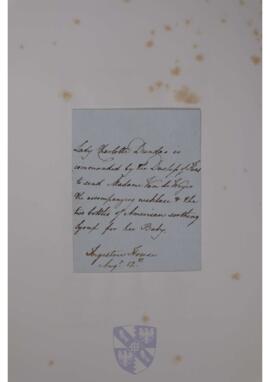 Lady Charlotte Dundas is
commanded by the Duchess of Kent
to send Madame Van de Weyer
the accompanying necklace & the
two bottles of American soothing
Syrup for her Baby.
Ingestre House
Augt. 12th